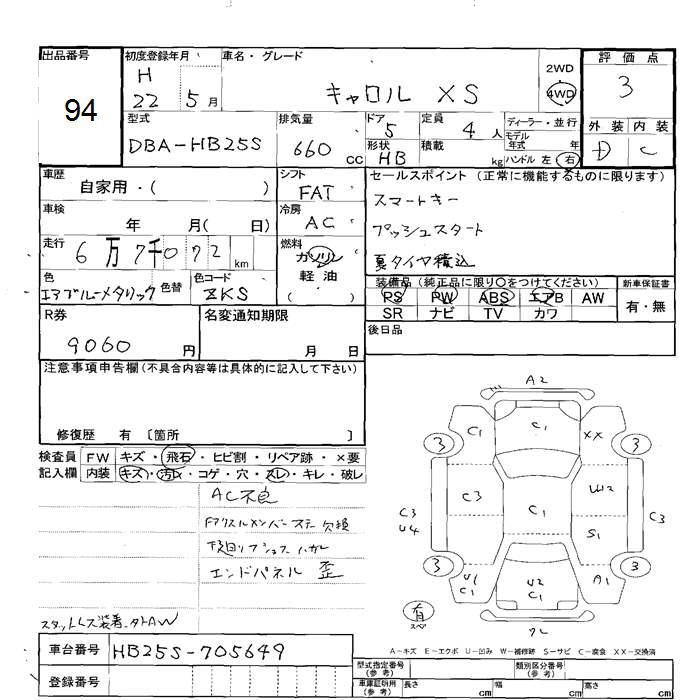 出品番号 初度登録年月 車名・グレード 評価点
94
H 22 5月 キャロル XS 2WD 4WD 3
型式 排気量 ドア 定員 ディーラー・並行 外装 内装
DBA-HB25S 660 CC 5 4人 モデル年式 年 D C
形状 HB 積載 kg ハンドル 左 右
車歴 シフト セールスポイント (正常に機能するものに限ります)
自家用・( ) FAT スマートキー
車検 冷房 プッシュスタート
年 月( 日) AC 夏タイヤ積込
走行 燃料
6万7千072km ガソリン
軽油
( )
色 色替 色コード 装備品 (純正品に限り〇をつけてください) 新車保証書
エアブルーメタリック ZKS PS PW ABS エアB AW 有・無
SR ナビ TV カワ
R券 名変通知期限 後日品
9060円 月 日
注意事項申告欄(不具合内容等は具体的に記入して下さい)
修復歴 有 〔箇所 〕
検査員 FW キズ・飛石・ヒビ割・リペア跡・×要
記入欄 内装 キズ・汚れ・コゲ・穴・スレ・キレ・破レ
AC不良
欠損
エンドパネル 歪
スタットレス装着
A2
C1 C1 XX
3 3
C3 C3 C1 W2 C3
U4 S1
3 3
U1 C1 U2 C1 A1
有
A-キズ E-エクボ U-凹み W-補修跡 S-サビ C-腐食 XX-交換済
車台番号 HB25S-705649
登録番号
型式指定番号(参考) 類別区分番号(参考)
車庫証明用(参考) 長さ cm 幅 cm 高さ cm